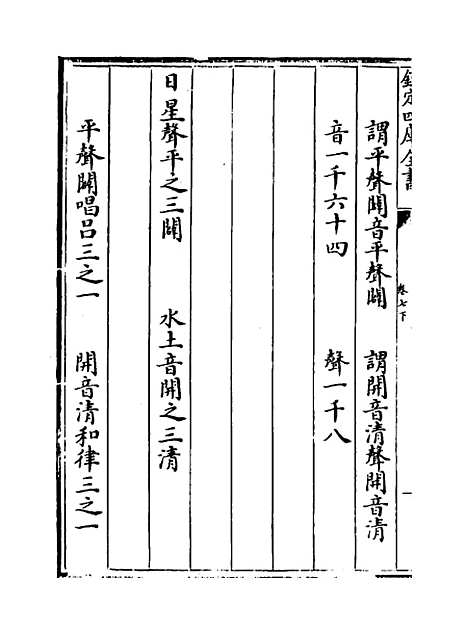 欽定四庫全書
卷七下
謂平聲闢音平聲闢　謂開音清聲開音清
音一千六十四　聲一千八
日星聲平之三闢　水土音開之三清
平聲闢唱呂三之一　開音清和律三之一